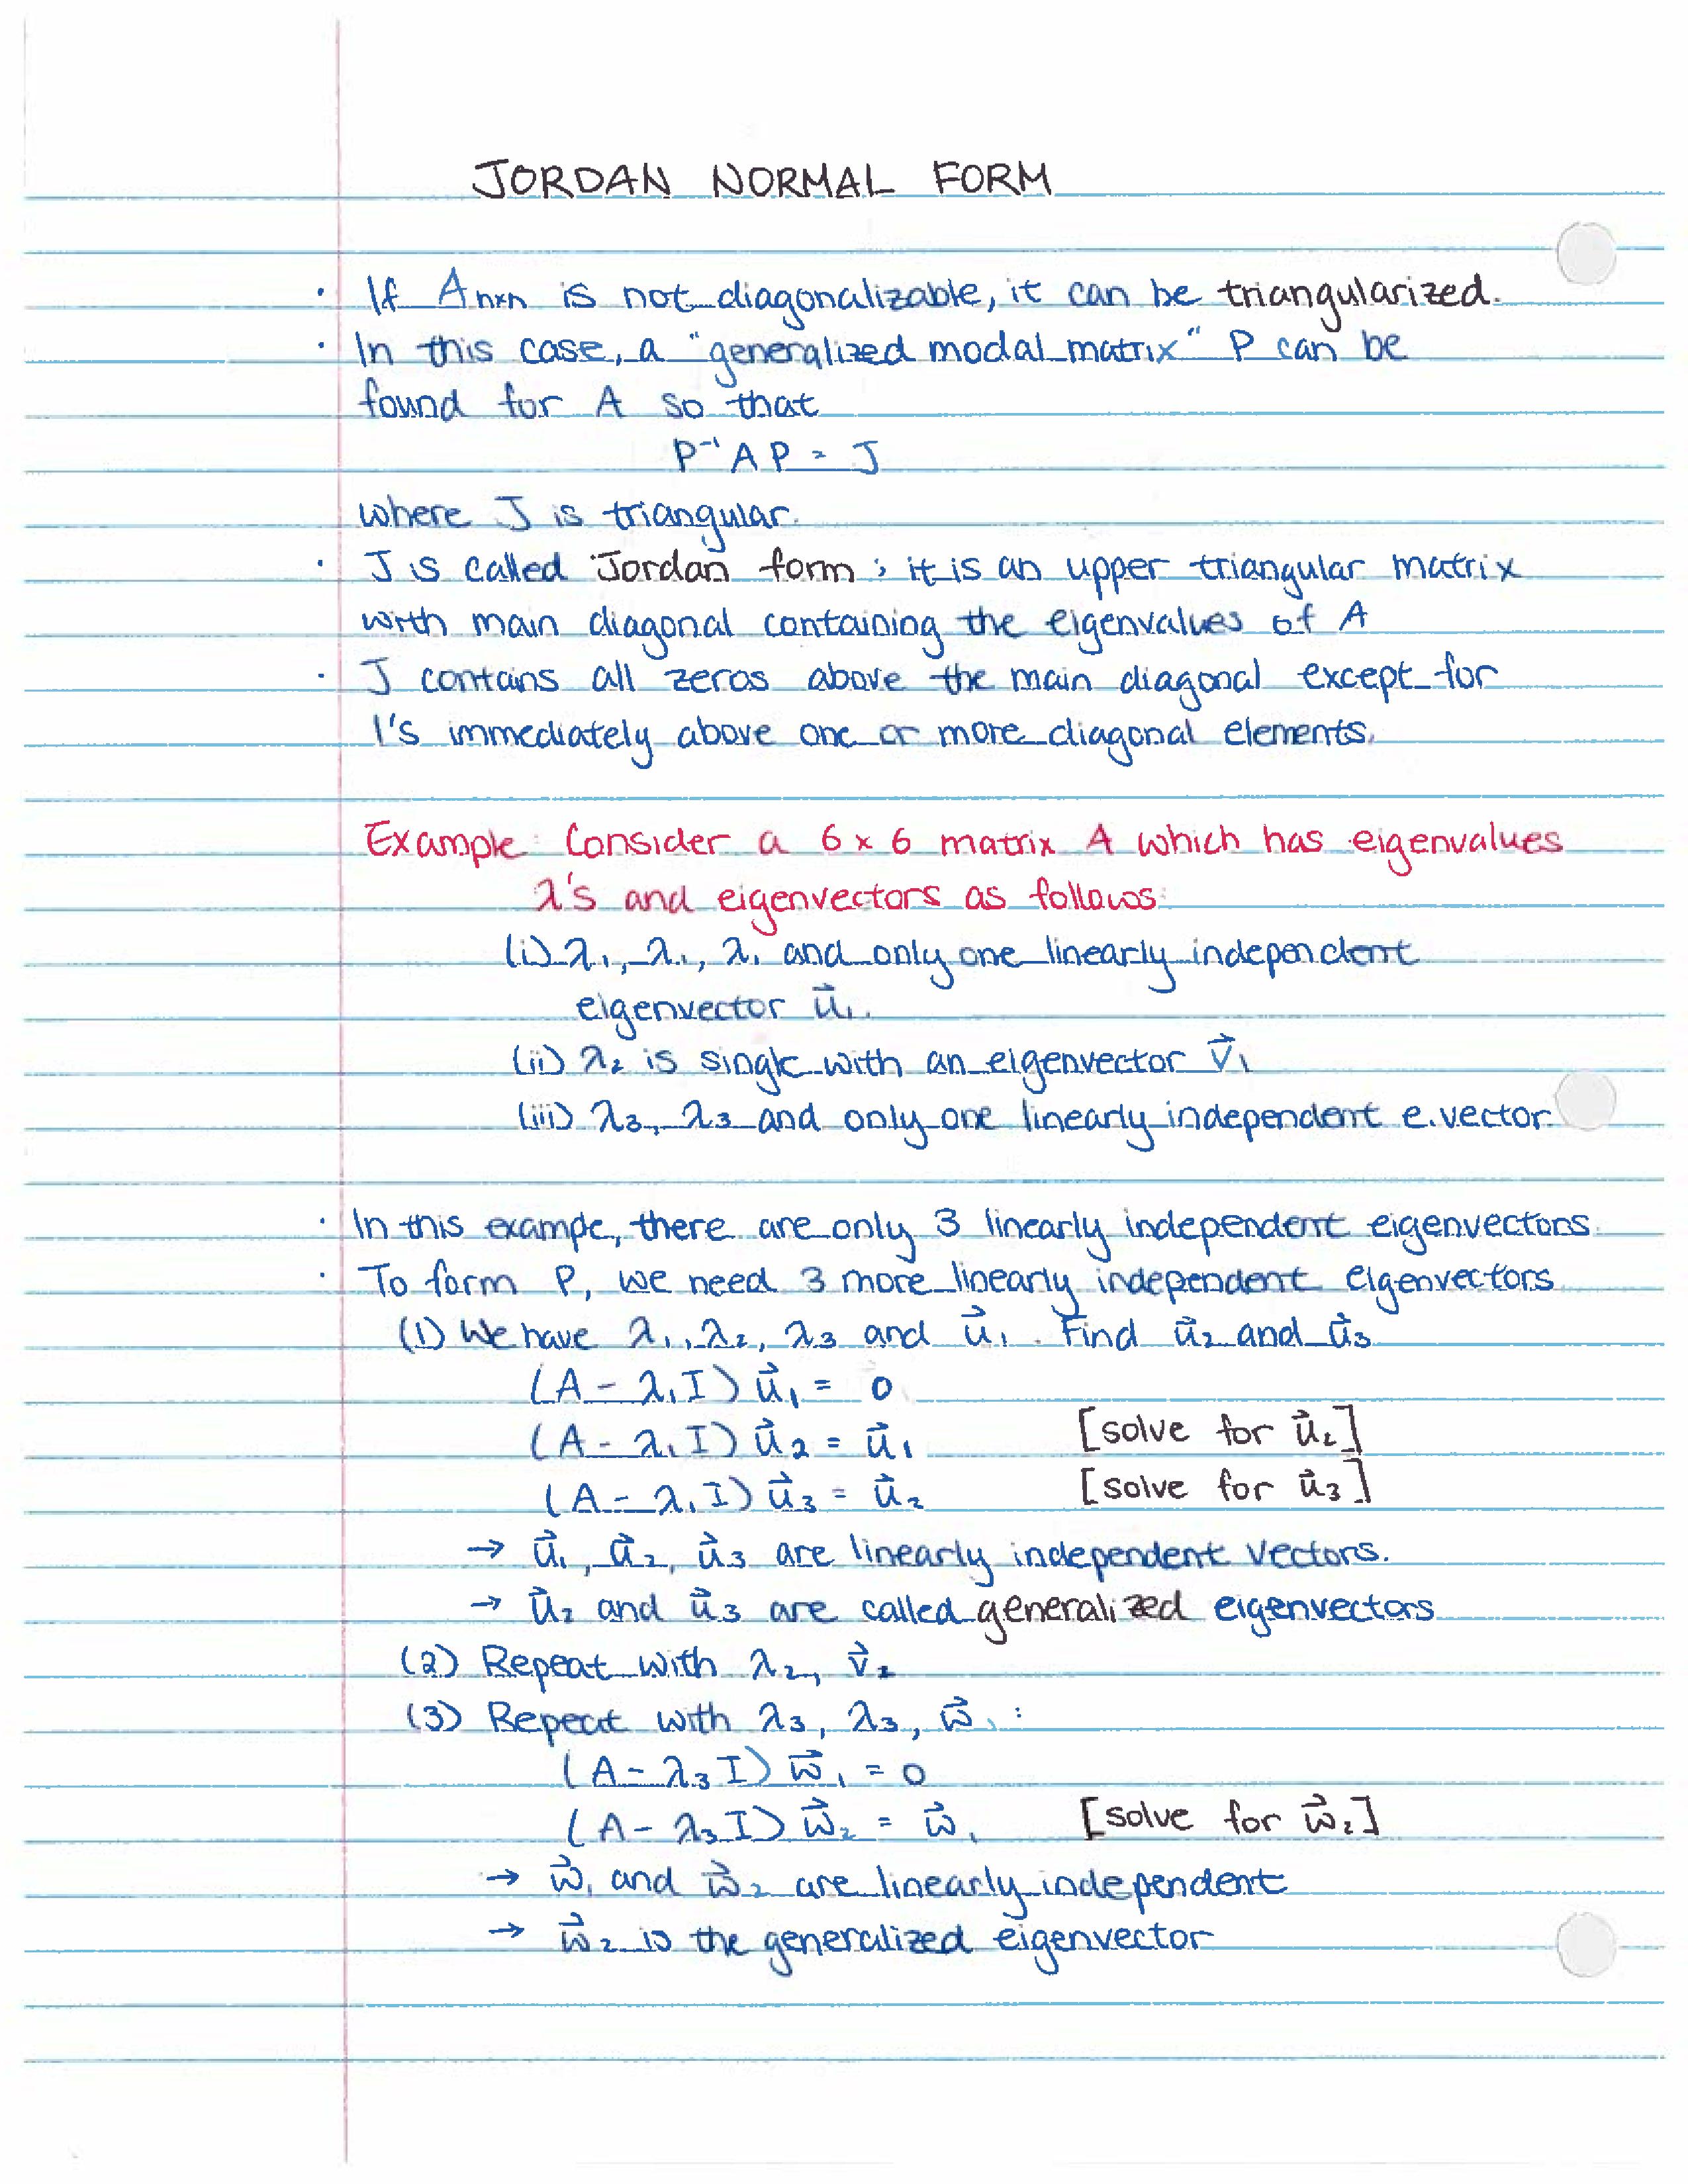 JORDAN NORMAL FORM
· If Anxn is not diagonalizable, it can be triangularized.
· In this case, a "generalized modal matrix" P can be
found for A so that
P⁻¹AP = J
where J is triangular.
· J is called Jordan form; it is an upper triangular matrix
with main diagonal containing the eigenvalues of A
· J contains all zeros above the main diagonal except for
1's immediately above one or more diagonal elements.
Example: Consider a 6 x 6 matrix A which has eigenvalues
λ's and eigenvectors as follows:
(i) λ₁, λ₁, λ₁ and only one linearly independent
eigenvector u⃗₁.
(ii) λ₂ is single with an eigenvector v⃗₁
(iii) λ₃, λ₃ and only one linearly independent e.vector.
· In this exampe, there are only 3 linearly independent eigenvectors.
· To form P, we need 3 more linearly independent eigenvectors
(1) We have λ₁, λ₂, λ₃ and u⃗₁. Find u⃗₂ and u⃗₃
(A - λ₁I) u⃗₁ = 0
(A - λ₁I) u⃗₂ = u⃗₁ [solve for u⃗₂]
(A - λ₁I) u⃗₃ = u⃗₂ [solve for u⃗₃]
→ u⃗₁, u⃗₂, u⃗₃ are linearly independent vectors.
→ u⃗₂ and u⃗₃ are called generalized eigenvectors
(2) Repeat with λ₂, v⃗₂
(3) Repeat with λ₃, λ₃, w⃗₁:
(A - λ₃I) w⃗₁ = 0
(A - λ₃I) w⃗₂ = w⃗₁ [solve for w⃗₂]
→ w⃗₁ and w⃗₂ are linearly independent
→ w⃗₂ is the generalized eigenvector